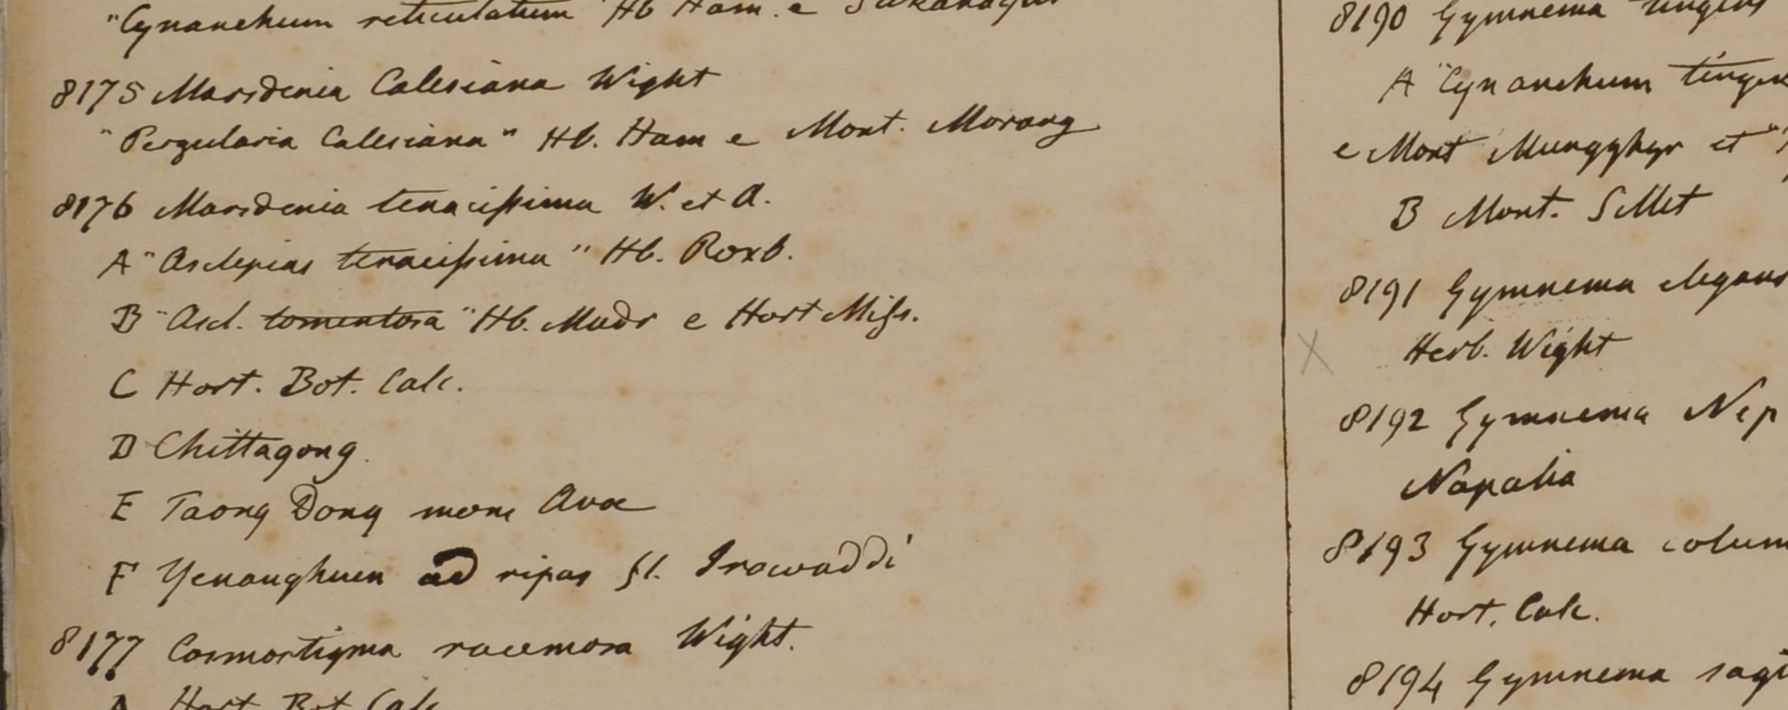 "Cynanchum reticulatum" Hb Ham. e
8175 Marsdenia Calesiana Wight
"Pergularia Calesiana" Hb. Ham e Mont. Morang
8176 Marsdenia tenacissima W. et A.
A "Asclepias tenacissima" Hb. Roxb.
B "Ascl. tomentosa" Hb. Madr e Hort Miss.
C Hort. Bot. Calc.
D Chittagong.
E Taong Dong mons Avæ
F Yenanghuen ad ripas fl. Irawaddi
8177 Cosmostigma racemosa Wight.
A Hort Bot Calc
8190 Gymnema tingens
A "Cynanchum tingen
e Mont Mungghyr et "
B Mont. Sillet
8191 Gymnema elegans
Herb. Wight
8192 Gymnema Nep
Napalia
8193 Gymnema colum
Hort. Calc.
8194 Gymnema sagi